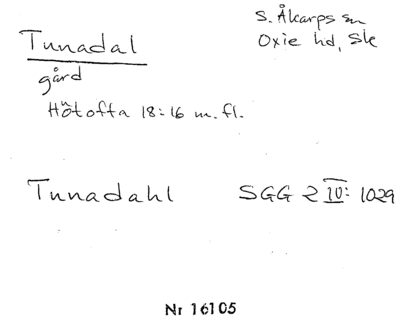 Tunadal
S. Åkarps sn
Oxie hd, Sk
gård
Hötofta 18:16 m.fl.
Tunadahl SGG 2 IV: 1029
Nr 16105